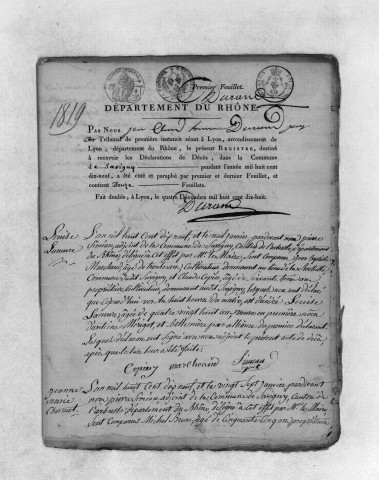 Premier Feuillet.
Durand
1819
DÉPARTEMENT DU RHÔNE
PAR NOUS jean Durand juge
au Tribunal de première instance séant à Lyon, arrondissement de
Lyon, département du Rhône, le présent REGISTRE, destiné
à recevoir les Déclarations de Décès, dans la Commune
de Savigny pendant l'année mil huit cent
dix-neuf, a été coté et paraphé par premier et dernier Feuillet, et
contient Douze Feuillets.
Fait double, à Lyon, le quatre Décembre mil huit cent dix-huit.
Durand
Louise
L'an mil huit Cent dix neuf et le neuf janvier pardevant nous pierre
Simian, adjoint de la Commune de Savigny, Canton de L'arbresle, département
du Rhône, délégué à Cet effet par Mr. le Maire, Sont Comparus
Marchand, âgé de trente ans, Cultivateur, demeurant au lieu de
Commune dudit Savigny, et Claude Copier, âgé de Soixante trois ans,
propriétaire Cultivateur, demeurant audit Savigny, lesquels nous ont déclaré
que Cejourd'hui vers huit heures du matin, est décédée Louise
âgée de quatre vingt huit ans, veuve en première
d'antoine
Lesquels déclarants ont signé avec nous adjoint le présent acte de décès
après que lecture leur a été faite.
Copier marchand Simian
jeanne
marie
L'an mil huit Cent dix neuf et le vingt Sept janvier pardevant
nous pierre Simian adjoint de la Commune de Savigny, Canton de
L'arbresle département du Rhône, délégué à Cet effet par Mr. le Maire,
Sont Comparus Michel Brun, âgé de Cinquante Cinq ans, propriétaire